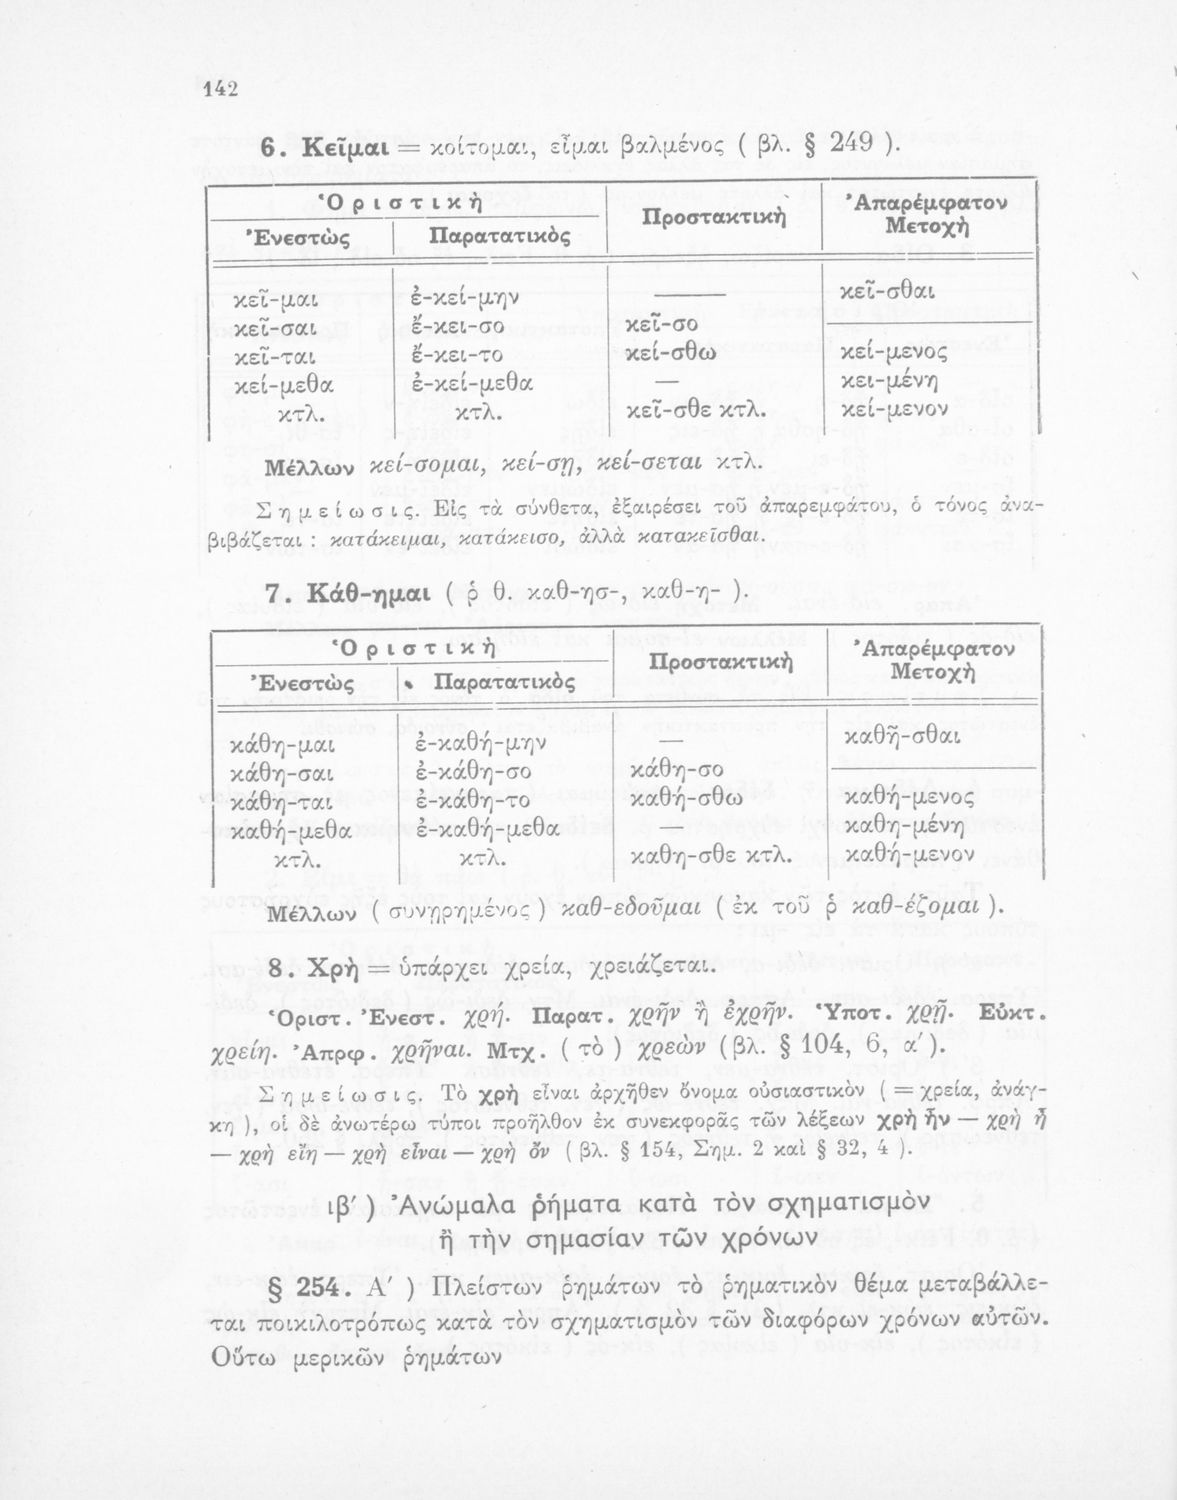 142
6. Κεῖμαι = κοίτομαι, εἶμαι βαλμένος ( βλ. § 249 ).
Ὁριστικὴ Προστακτικὴ Ἀπαρέμφατον Μετοχὴ
Ἐνεστὼς Παρατατικὸς
κεῖ-μαι ἐ-κεί-μην —— κεῖ-σθαι
κεῖ-σαι ἔ-κει-σο κεῖ-σο
κεῖ-ται ἔ-κει-το κεί-σθω κεί-μενος
κεί-μεθα ἐ-κεί-μεθα — κει-μένη
κτλ. κτλ. κεῖ-σθε κτλ. κεί-μενον
Μέλλων κεί-σομαι, κεί-σῃ, κεί-σεται κτλ.
Σημείωσις. Εἰς τὰ σύνθετα, ἐξαιρέσει τοῦ ἀπαρεμφάτου, ὁ τόνος ἀνα-
βιβάζεται : κατάκειμαι, κατάκεισο, ἀλλὰ κατακεῖσθαι.
7. Κάθ-ημαι ( ῥ θ. καθ-ησ-, καθ-η- ).
Ὁριστικὴ Προστακτικὴ Ἀπαρέμφατον Μετοχὴ
Ἐνεστὼς Παρατατικὸς
κάθη-μαι ἐ-καθή-μην — καθῆ-σθαι
κάθη-σαι ἐ-κάθη-σο κάθη-σο
κάθη-ται ἐ-κάθη-το καθή-σθω καθή-μενος
καθή-μεθα ἐ-καθή-μεθα — καθη-μένη
κτλ. κτλ. καθη-σθε κτλ. καθή-μενον
Μέλλων ( συνῃρημένος ) καθ-εδοῦμαι ( ἐκ τοῦ ῥ καθ-έζομαι ).
8. Χρὴ = ὑπάρχει χρεία, χρειάζεται.
Ὁριστ. Ἐνεστ. χρή. Παρατ. χρῆν ἢ ἐχρῆν. Ὑποτ. χρῇ. Εὐκτ.
χρείη. Ἀπρφ. χρῆναι. Μτχ. ( τὸ ) χρεὼν (βλ. § 104, 6, α′).
Σημείωσις. Τὸ χρὴ εἶναι ἀρχῆθεν ὄνομα οὐσιαστικὸν ( = χρεία, ἀνάγ-
κη ), οἱ δὲ ἀνωτέρω τύποι προῆλθον ἐκ συνεκφορᾶς τῶν λέξεων χρὴ ἦν — χρὴ ᾖ
— χρὴ εἴη — χρὴ εἶναι — χρὴ ὂν ( βλ. § 154, Σημ. 2 καὶ § 32, 4 ).
ιβ′ ) Ἀνώμαλα ῥήματα κατὰ τὸν σχηματισμὸν
ἢ τὴν σημασίαν τῶν χρόνων
§ 254. Α′ ) Πλείστων ῥημάτων τὸ ῥηματικὸν θέμα μεταβάλλε-
ται ποικιλοτρόπως κατὰ τὸν σχηματισμὸν τῶν διαφόρων χρόνων αὐτῶν.
Οὕτω μερικῶν ῥημάτων